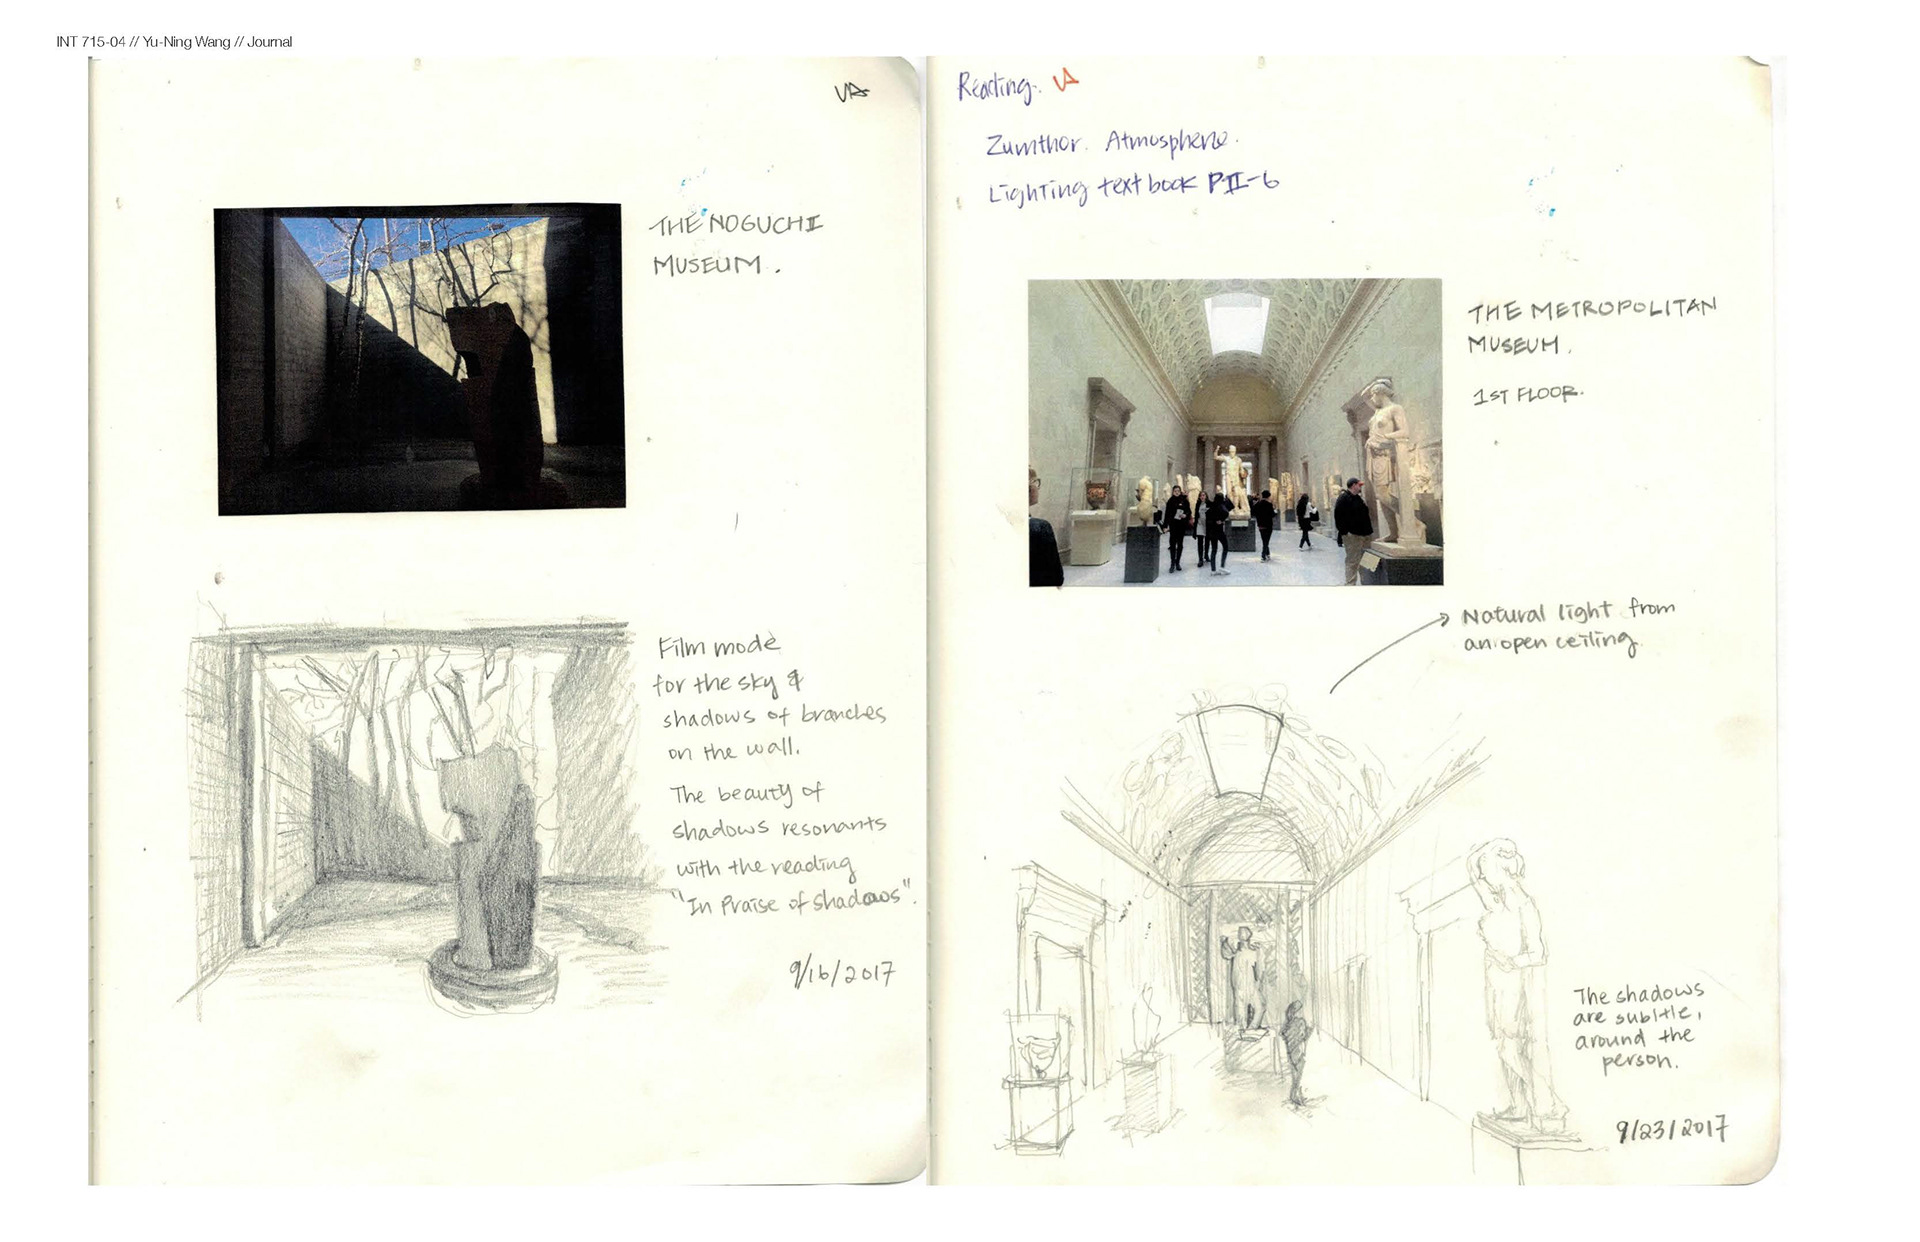 INT 715-04 // Yu-Ning Wang // Journal
THE NOGUCHI
MUSEUM.
Film mode
for the sky &
shadows of branches
on the wall.
The beauty of
shadows resonants
with the reading
"In Praise of shadows".
9/16/2017
Reading.
Zumthor. Atmosphere.
Lighting textbook PII-6
THE METROPOLITAN
MUSEUM.
1ST FLOOR.
Natural light from
an open ceiling.
The shadows
are subltle,
around the
person.
9/23/2017